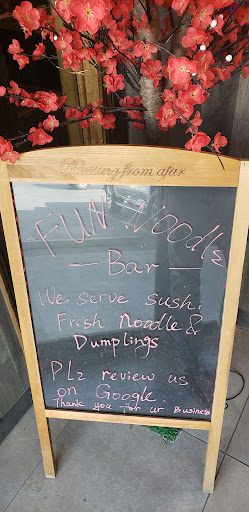 Blessing from afar
FUN Noodle
— Bar —
We serve sushi
Fresh Noodle &
Dumplings
PLz review us
on Google.
Thank you for ur Business